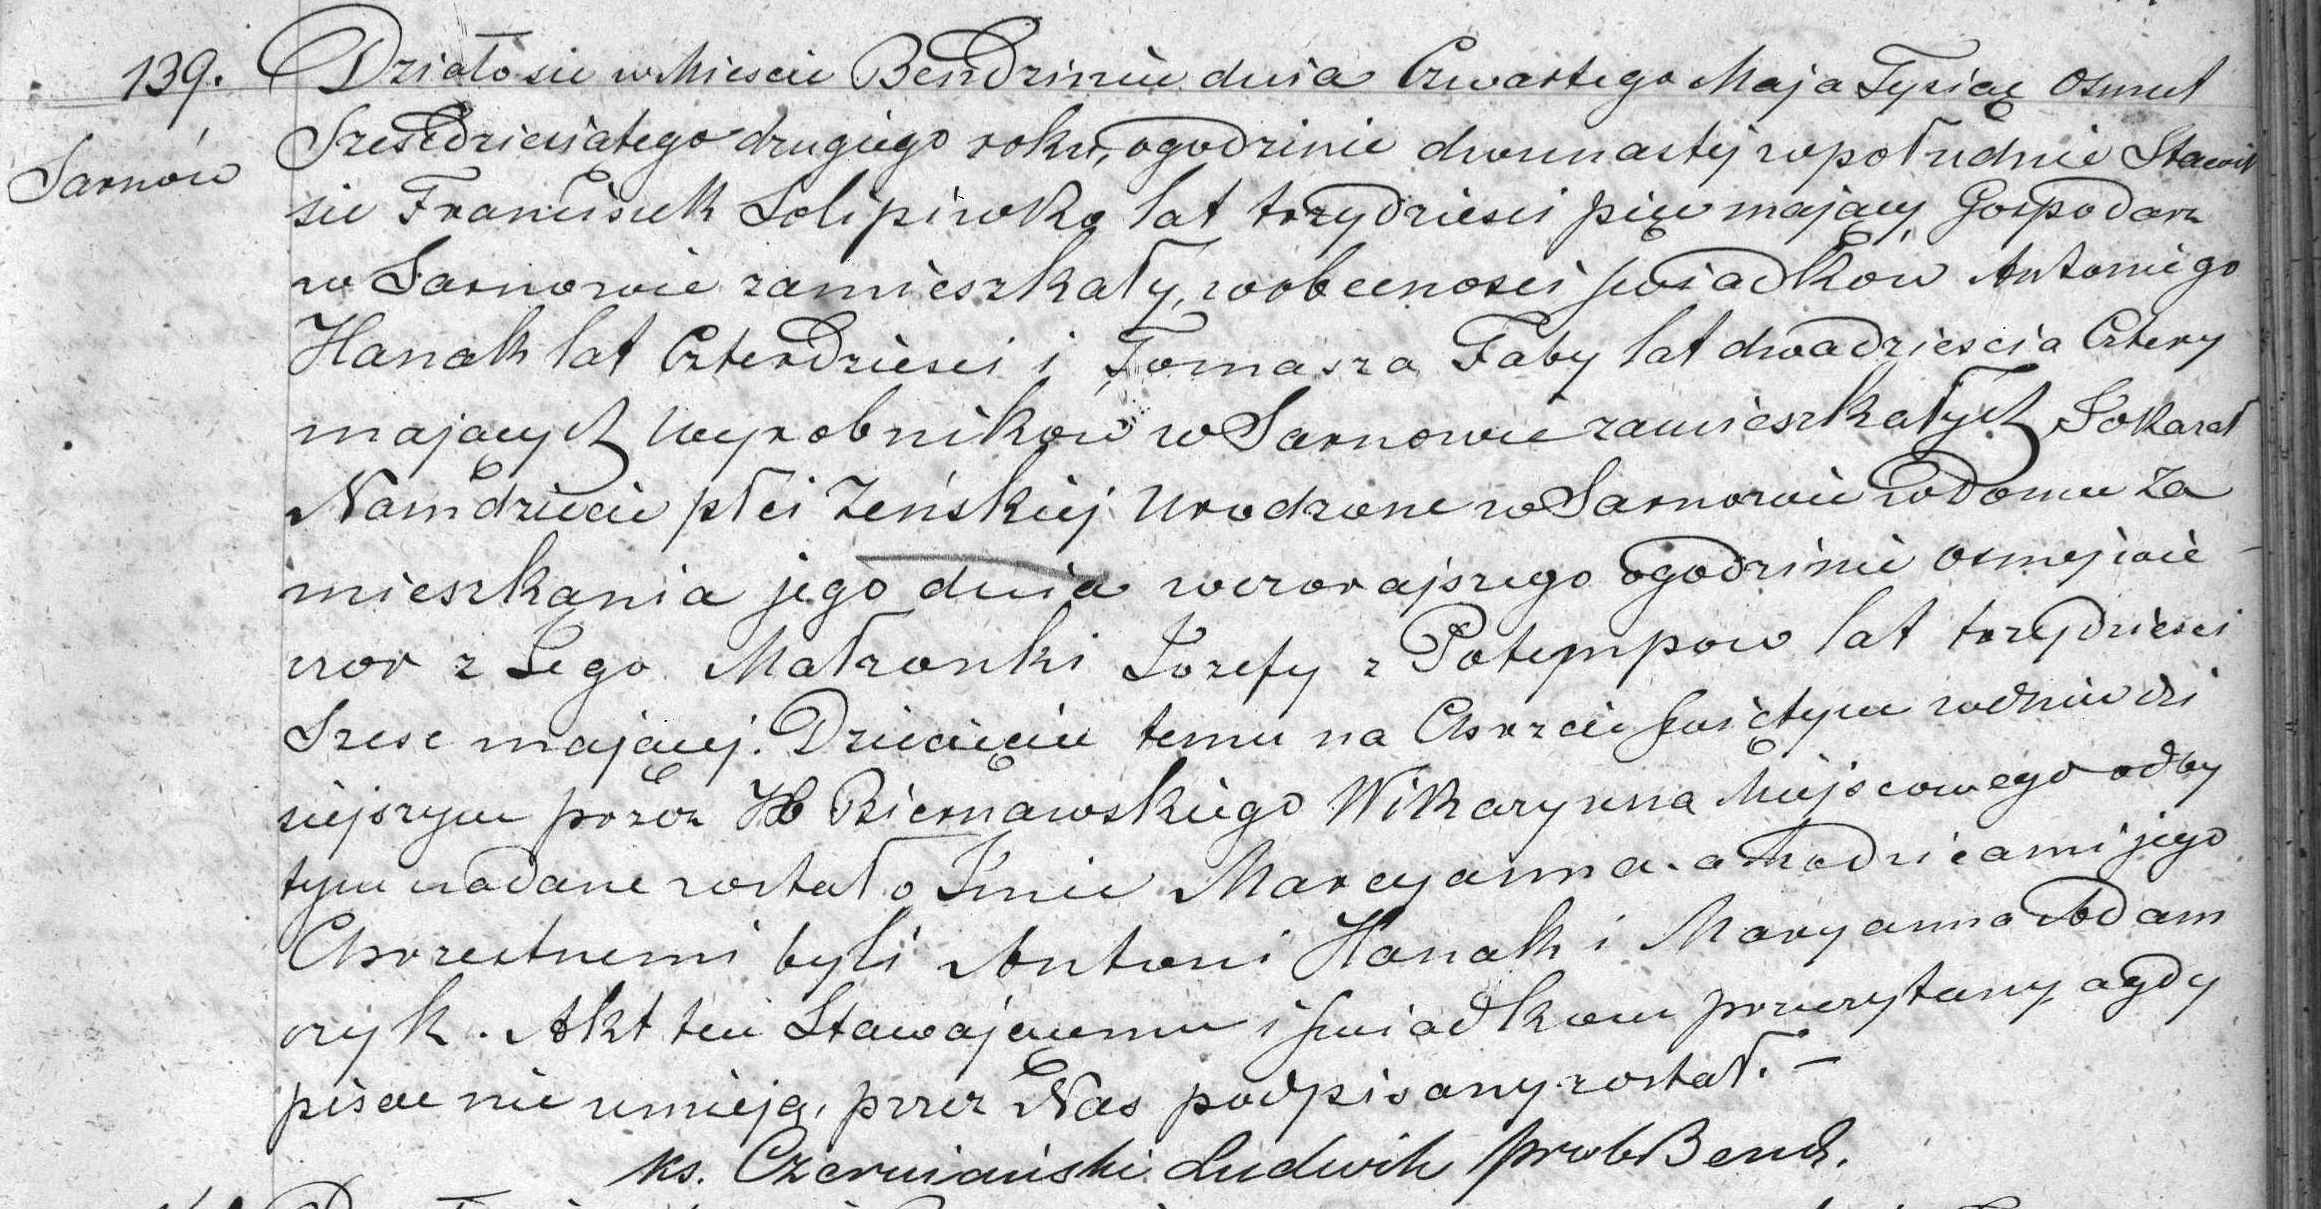 139. Działo sie w Miescie Bendzinie dnia Czwartego Maja Tysiąc Osmset
Sarnów
Szescdziesiątego drugiego roku, o godzinie dwunastej w południe Stawił
sie Franciszek Solipiwko lat trzydziesci pięc mający Gospodarz
w Sarnowie zamieszkały, w obecnosci swiadków Antoniego
Hanak lat Czterdziesci i Tomasza Faby lat dwadziescia Cztery
mających wyrobników w Sarnowie zamieszkałych, Okazał
Nam dziecie płci Zeńskiej Urodzone w Sarnowie w domu Za
mieszkania jego dnia wczorajszego o godzinie osmej wie
czor z Jego Małzonki Jozefy z Potempow lat trzydziesci
Szesc mającej. Dziecięciu temu na Chrzcie swiętym w dniu dzi
siejszym przez X Biernawskiego Wikaryusza Miejscowego odby
tym nadane zostało Imie Maryanna. a Rodzicami jego
Chrzestnemi byli Antoni Hanak i Maryanna Adam
czyk. Akt ten Stawającemu i swiadkom przeczytany, a gdy
pisac nie umieją, przez Nas podpisany został. –
ks. Czerniański Ludwik prob Bendz.